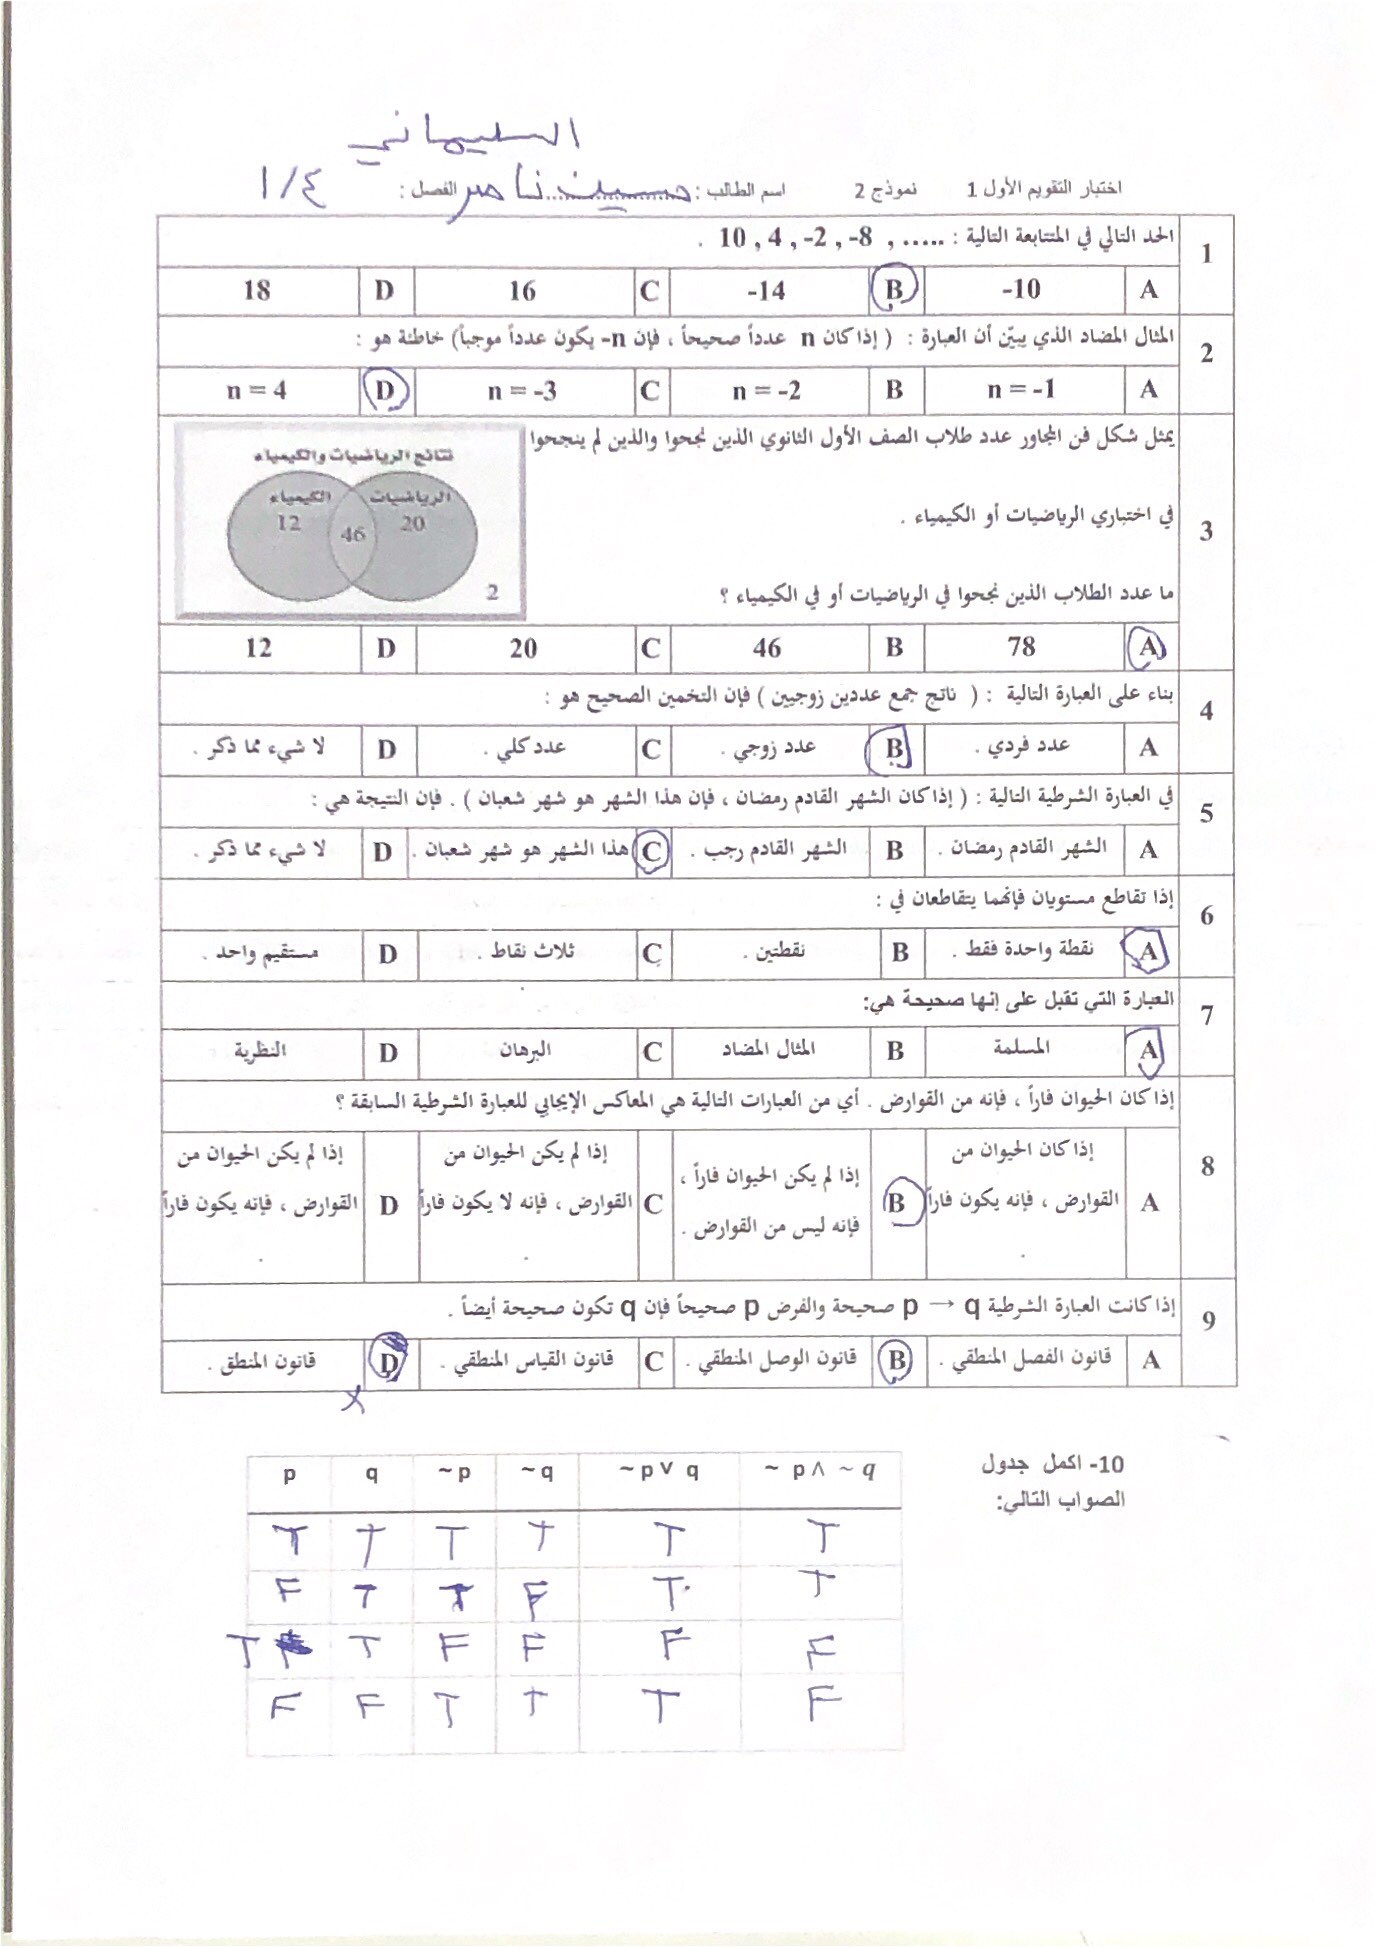 السليماني
اختبار التقويم الأول 1 نموذج 2 اسم الطالب : حسين ناصر الفصل : ١/٤
1 الحد التالي في المتتابعة التالية : 10 , 4 , -2 , -8 , ..... .
A -10 B -14 C 16 D 18
2 المثال المضاد الذي يبيّن أن العبارة : ( إذا كان n عدداً صحيحاً ، فإن n- يكون عدداً موجباً) خاطئة هو :
A n = -1 B n = -2 C n = -3 D n = 4
3 يمثل شكل فن المجاور عدد طلاب الصف الأول الثانوي الذين نجحوا والذين لم ينجحوا
في اختباري الرياضيات أو الكيمياء .
ما عدد الطلاب الذين نجحوا في الرياضيات أو في الكيمياء ؟
نتائج الرياضيات والكيمياء
الرياضيات الكيمياء
20 46 12
2
A 78 B 46 C 20 D 12
4 بناء على العبارة التالية : ( ناتج جمع عددين زوجيين ) فإن التخمين الصحيح هو :
A عدد فردي . B عدد زوجي . C عدد كلي . D لا شيء مما ذكر .
5 في العبارة الشرطية التالية : ( إذا كان الشهر القادم رمضان ، فإن هذا الشهر هو شهر شعبان ) . فإن النتيجة هي :
A الشهر القادم رمضان . B الشهر القادم رجب . C هذا الشهر هو شهر شعبان . D لا شيء مما ذكر .
6 إذا تقاطع مستويان فإنهما يتقاطعان في :
A نقطة واحدة فقط . B نقطتين . C ثلاث نقاط . D مستقيم واحد .
7 العبارة التي تقبل على إنها صحيحة هي:
A المسلمة B المثال المضاد C البرهان D النظرية
8 إذا كان الحيوان فاراً ، فإنه من القوارض . أي من العبارات التالية هي المعاكس الإيجابي للعبارة الشرطية السابقة ؟
A إذا كان الحيوان من القوارض ، فإنه يكون فاراً . B إذا لم يكن الحيوان فاراً ، فإنه ليس من القوارض . C إذا لم يكن الحيوان من القوارض ، فإنه لا يكون فاراً . D إذا لم يكن الحيوان من القوارض ، فإنه يكون فاراً .
9 إذا كانت العبارة الشرطية p → q صحيحة والفرض p صحيحاً فإن q تكون صحيحة أيضاً .
A قانون الفصل المنطقي . B قانون الوصل المنطقي . C قانون القياس المنطقي . D قانون المنطق .
x
10- اكمل جدول
الصواب التالي:
p q ~p ~q ~p∨ q ~ p∧ ~q
T T T T T T
F T T F T T
T T F F F F
F F T T T F